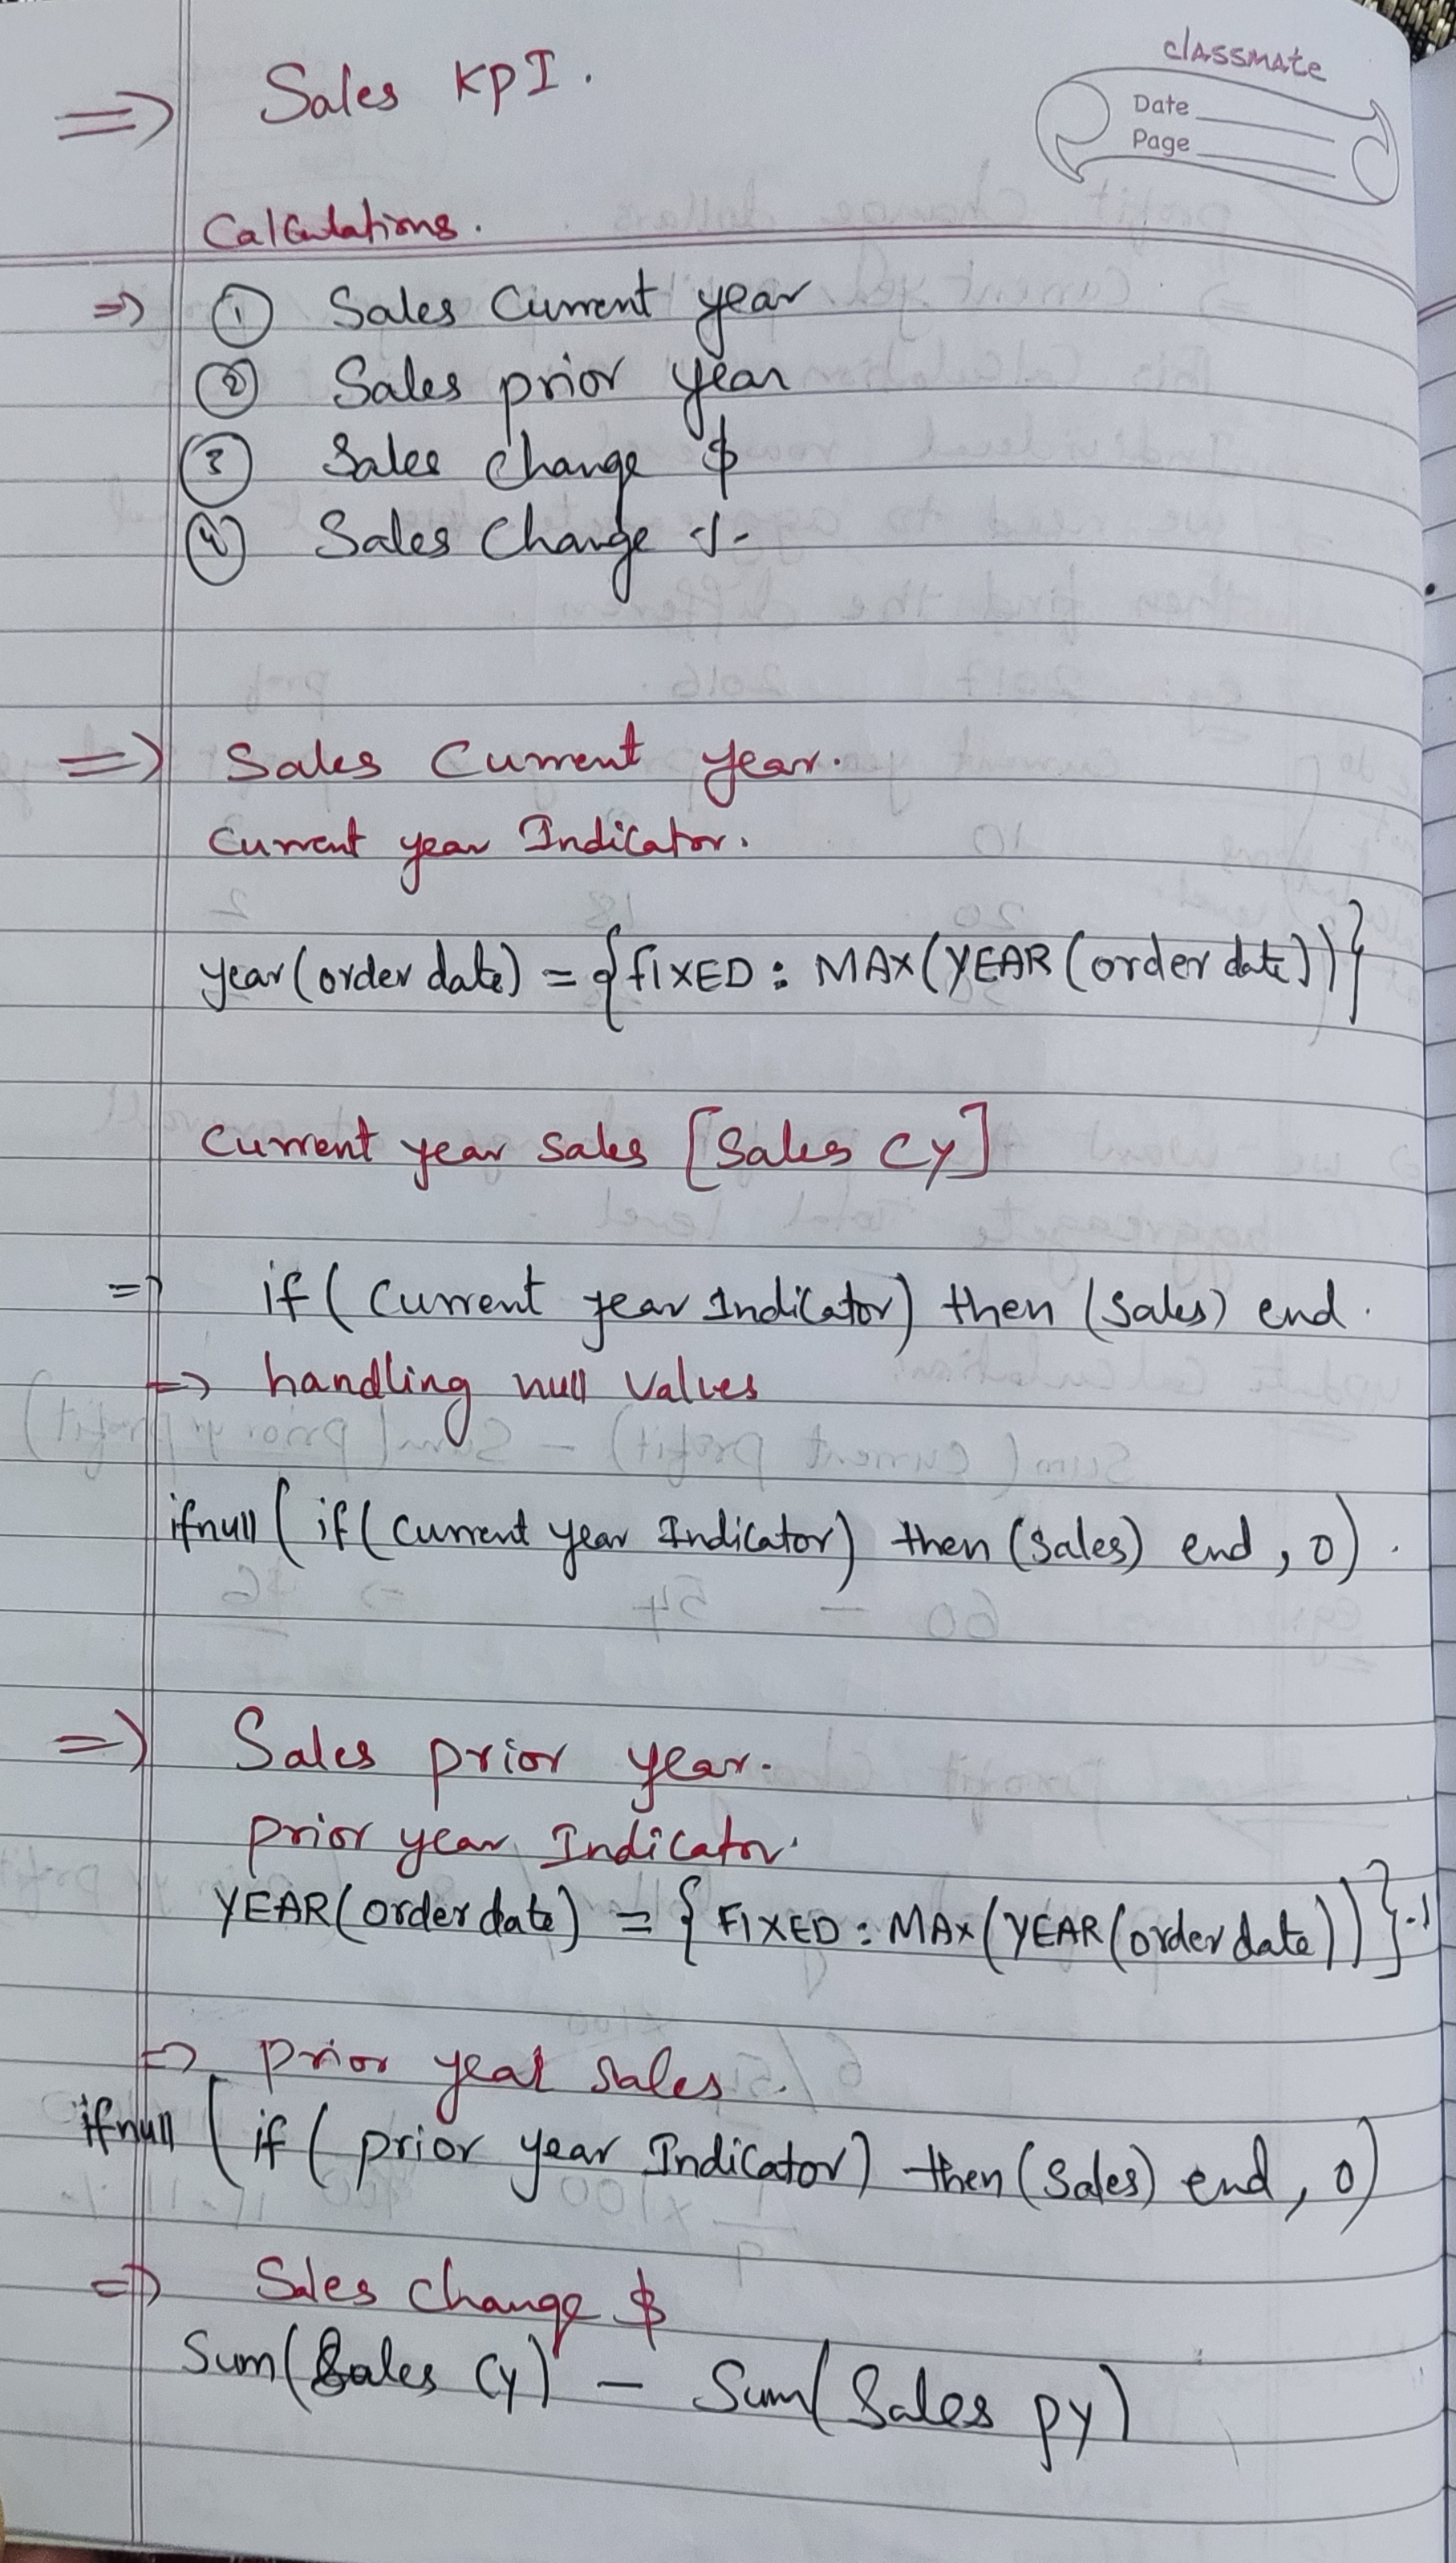 classmate
Date
Page
=> Sales KPI.
Calculations.
=> ① Sales Current year
② Sales prior year
③ Sales change $
④ Sales Change %
=> Sales Current year.
Current year Indicator.
year(order date) = {FIXED : MAX(YEAR(order date))}
Current year sales [Sales CY]
=> if (Current year Indicator) then (sales) end.
=> handling null values
ifnull (if (current year Indicator) then (sales) end, 0).
=> Sales prior year.
prior year Indicator.
YEAR(order date) = {FIXED : MAX(YEAR(order date))}-1
=> prior year sales.
ifnull (if (prior year Indicator) then (sales) end, 0)
=> Sales change $
Sum(Sales CY) - Sum(Sales py)